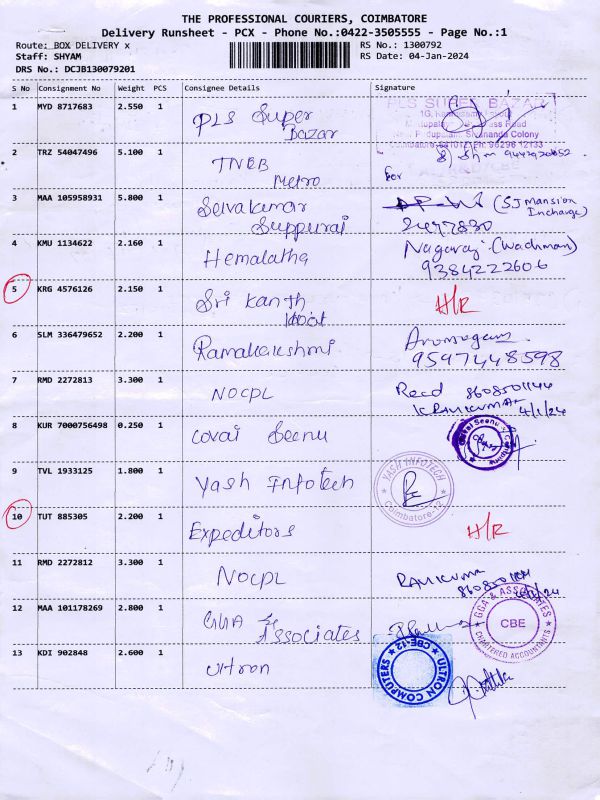 THE PROFESSIONAL COURIERS, COIMBATORE
Delivery Runsheet - PCX - Phone No.:0422-3505555 - Page No.:1
Route: BOX DELIVERY x
RS No.: 1300792
Staff: SHYAM
RS Date: 04-Jan-2024
DRS No.: DCJB130079201
S No Consignment No Weight PCS Consignee Details Signature
1 MYD 8717683 2.550 1 PLS Super Bazar
PLS SUPER BAZAR
2 TRZ 54047496 5.100 1 TNEB Metro
for
3 MAA 105958931 5.800 1 Selvakumar Suppuraj
(SJ Mansion Incharge)
4 KMU 1134622 2.160 1 Hemalatha Nagaraj (Wachman)
9384222606
5 KRG 4576126 2.150 1 Sri Kanth H/R
6 SLM 336479652 2.200 1 Ramalakshmi Arumugam
9597448598
7 RMD 2272813 3.300 1 NOCPL Recd 8608501144
K RAVIKUMAR 4/1/24
8 KUR 7000756498 0.250 1 Covai Seenu
9 TVL 1933125 1.800 1 Yash Infotech
YASH INFOTECH
Coimbatore-12
10 TUT 885305 2.200 1 Expeditors H/R
11 RMD 2272812 3.300 1 NOCPL RAVIKUMA
12 MAA 101178269 2.800 1 GMA Associates
GGA & ASSOCIATES
CBE
CHARTERED ACCOUNTANTS
13 KDI 902848 2.600 1 Ultron
ULTRON COMPUTERS
CBE-12